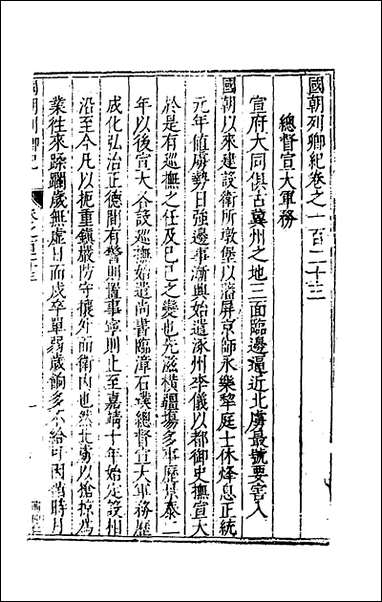 國朝列卿紀卷之一百二十三
總督宣大軍務
宣府大同俱古冀州之地三面臨邊逼近北虜最號要害入
國朝以來建設衛所墩堡以藩屏京師永樂犂庭士休烽息正統
元年值虜勢日強邊事漸興始遣涿州李儀以都御史撫宣大
於是有巡撫之任及己巳之變也先滋橫疆場多事廢景泰二
年以後宣大分設巡撫始遣尚書臨漳石璞總督宣大軍務歷
成化弘治正德間有警則置事寧則止至嘉靖十年始定設相
沿至今凡以扼重鎮嚴防守攘外而衛內也然北虜以搶掠為
業往來蹂躪歲無虛日而戍卒單弱歲餉多不給可因循時月